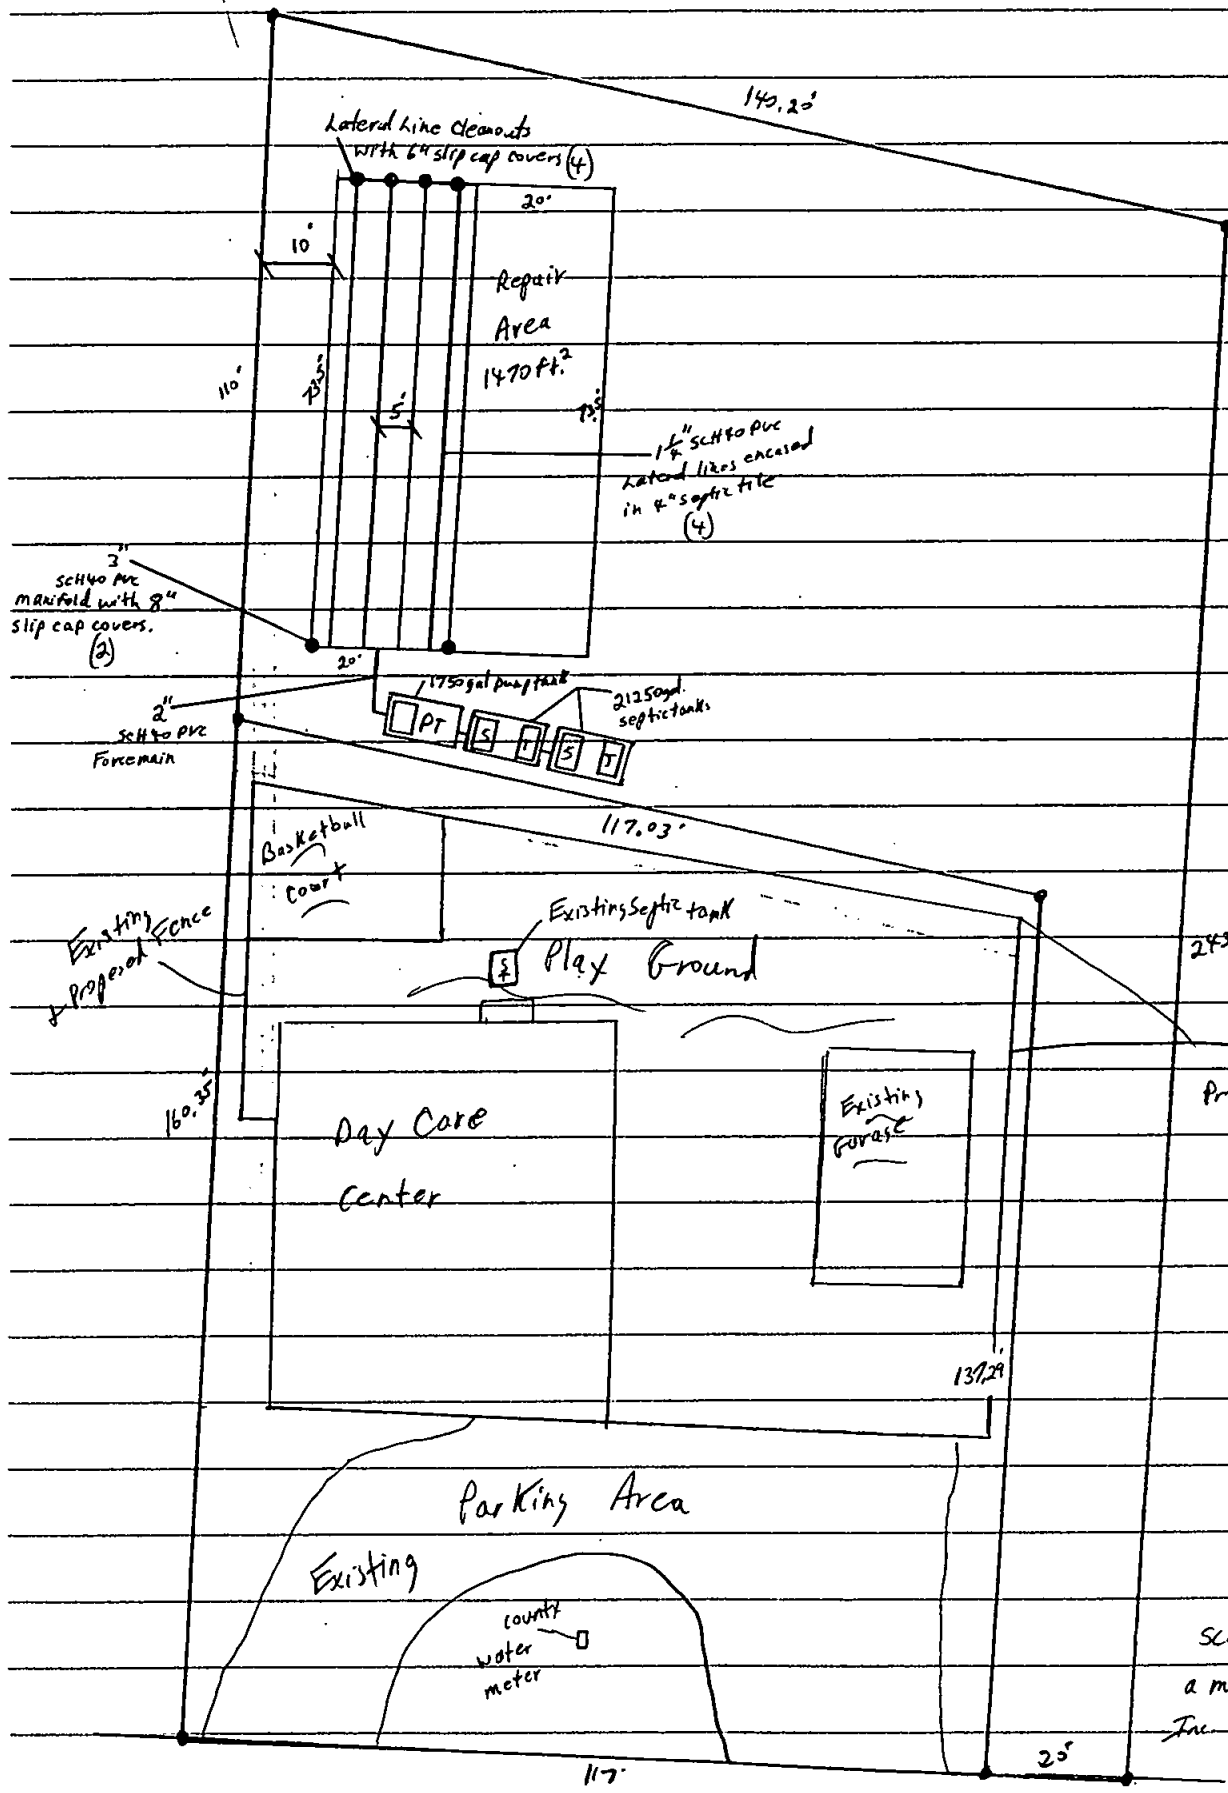 140.20'
Lateral Line Cleanouts
with 6" slip cap covers (4)
20'
10'
Repair
Area
1470 ft.²
110'
73.5'
5'
73.5'
1 1/4" SCH40 PVC
Lateral lines encased
in 4" septic tile
(4)
3"
SCH40 PVC
manifold with 8"
slip cap covers.
(2)
20'
1750gal pump tank
2 1250gal.
septic tanks
2"
SCH40 PVC
Forcemain
PT
S
T
S
T
117.03'
Basketball
Court
Existing
& Proposed Fence
Existing Septic tank
ST
Play Ground
243
160.35'
Day Care
Center
Existing
Garage
Pr
137.29'
Parking Area
Existing
county
water
meter
a m
Inc
20'
117'